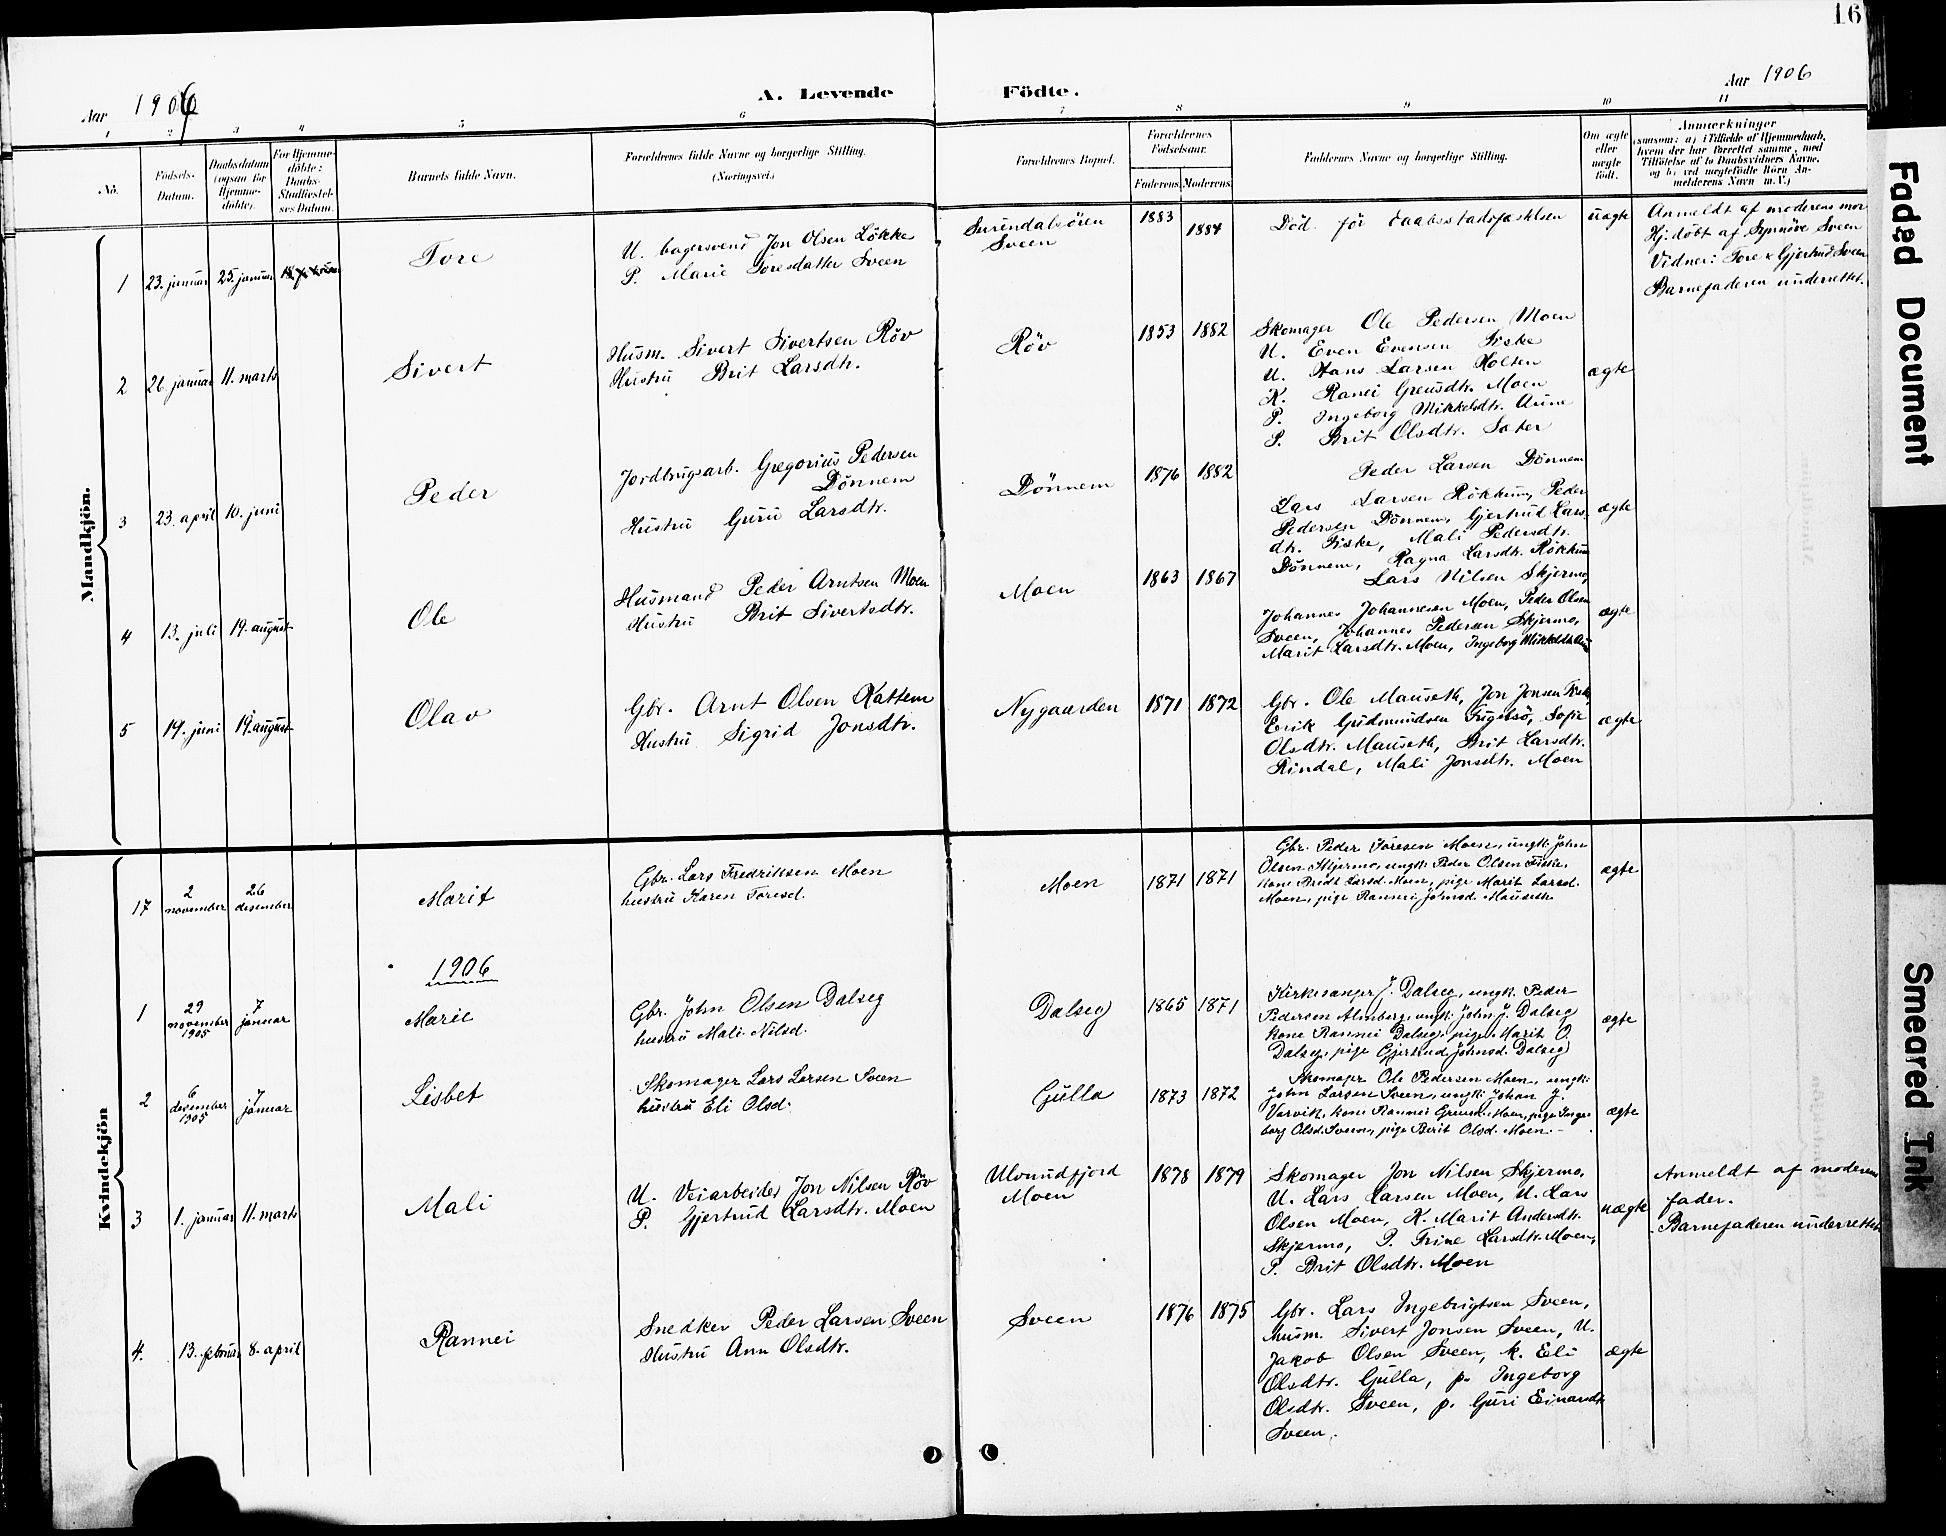 16
Aar 1906
A. Levende Födte.
Aar 1906
1 2 3 4 5 6 7 8 9 10 11
No.
Födsels-
Datum.
Daabsdatum
(ogsaa for
Hjemme-
döbte).
For Hjemme-
döbte:
Daabs-
Stadfæstel-
ses Datum.
Barnets fulde Navn.
Forældrenes fulde Navne og borgerlige Stilling.
(Næringsvei.)
Forældrenes Bopæl.
Forældrenes
Födselsaar.
Faderens. Moderens.
Faddernes Navne og borgerlige Stilling.
Om ægte
eller
uægte
født.
Anmærkninger
(saasom: a) i Tilfælde af Hjemmedaab,
hvem der har forrettet samme, med
Tilföielse af to Daabsvidners Navne,
og b) ved uægtefödte Börn An-
melderens Navn m.V.)
Mandkjön.
1
23. januar
25. januar
Tore
U. bagersvend Jon Olsen Løkke
P. Marie Toresdatter Sveen
Surendalsören
Sveen
1883
1884
Död för daabsstadfæstelsen
uægte
Anmeldt af moderens mor
Hj. döbt af Synnöve Sveen
Vidner: Tore & Gjertrud Sveen
Barnefaderen underrettet.
2
26. januar
11. marts
Sivert
Husm. Sivert Sivertsen Röv
Hustru Brit Larsdtr.
Röv
1853
1882
Skomager Ole Pedersen Moen
U. Even Evensen Fiske
U. Hans Larsen Holten
K. Ranei Greusdtr. Moen
P. Ingeborg Mikkelsdtr. Aune
P. Brit Olsdtr. Sæter
ægte
3
23. april
10. juni
Peder
Jordbrugsarb. Gregorius Pedersen
Dönnem
Hustru Guru Larsdtr.
Dönnem
1876
1882
Peder Larsen Dönnem
Lars Larsen Rökkum, Peder
Pedersen Dönnem, Gjertrud Lars-
dtr. Fiske, Mali Pedersdtr.
Dönnem, Ragna Larsdtr. Rökkum
ægte
4
13. juli
19. august
Ole
Husmand Peder Arntsen Moen
Hustru Brit Sivertsdtr.
Moen
1863
1867
Lars Nilsen Skjermo,
Johannes Johannesen Moen, Peder Olsen
Sveen, Johannes Pedersen Skjermo,
Marit Larsdtr. Moen, Ingeborg Mikkelsdtr. Aune
ægte
5
19. juni
19. august
Olav
Gbr. Arnt Olsen Kattem
Hustru Sigrid Jonsdtr.
Nygaarden
1871
1872
Gbr. Ole Mauseth, Jon Jonsen Fiske,
Erik Gudmundsen Fugelsö, Sofie
Olsdtr. Mauseth, Brit Larsdtr.
Rindal, Mali Jonsdtr. Moen
ægte
Kvindekjön
17
2
november
26
desember
Marit
Gbr. Lars Fredriksen Moen
hustru Karen Toresd.
Moen
1871
1871
Gbr. Peder Toresen Moen, ungk. John
Olsen Skjermo, ungk. Peder Olsen Fiske,
kone Bridt Larsd. Moen, pige Marit Larsd.
Moen, pige Rannei Johnsd. Mauseth
ægte
1906
1
29
november
1905
7
januar
Marie
Gbr. John Olsen Dalseg
hustru Mali Nilsd.
Dalseg
1865
1871
Kirkesanger J. Dalseg, ungk. Peder
Pedersen Almberg, ungk. John J. Dalseg
kone Rannei Dalseg, pige Marit O.
Dalseg, pige Gjertrud Johnsd. Dalseg
ægte
2
6
desember
1905
7
januar
Lisbet
Skomager Lars Larsen Sveen
hustru Eli Olsd.
Gulla
1873
1872
Skomager Ole Pedersen Moen, ungk.
John Larsen Sveen, ungk. Johan J.
Varvik, kone Rannei Greusd. Moen, pige Inge-
borg Olsd. Sveen, pige Berit Olsd. Moen.
ægte
3
1. januar
11. marts
Mali
U. Veiarbeider Jon Nilsen Röv
P. Gjertrud Larsdtr. Moen
Ulvundfjord
Moen
1878
1879
Skomager Jon Nilsen Skjermo,
U. Lars Larsen Moen, U. Lars
Olsen Moen, K. Marit Andersdtr.
Skjermo, P. Trine Larsdtr. Moen,
P. Brit Olsdtr. Moen
uægte
Anmeldt af moderens
fader.
Barnefaderen underrettet.
4.
13. februar
8. april
Rannei
Snedker Peder Larsen Sveen
Hustru Ann Olsdtr.
Sveen
1876
1875
Gbr. Lars Ingebrigtsen Sveen,
husm. Sivert Jonsen Sveen, U.
Jakob Olsen Sveen, k. Eli
Olsdtr. Gulla, p. Ingeborg
Olsdtr. Sveen, p. Guri Einarsdtr.
Sveen.
ægte
Faded Document
Smeared Ink